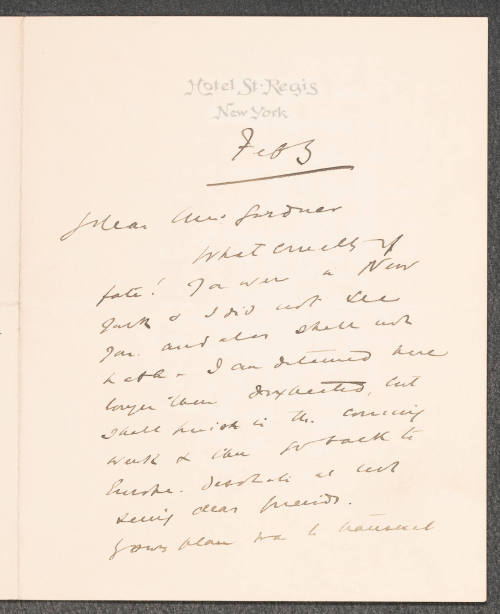 Hotel St. Regis
New York
Feb 3
Dear Mrs Gardner
What cruelty of
fate! You were in New
York & I did not see
you. and alas shall not
I am detained here
longer than I expected, but
I shall finish in the coming
week & then go back to
Europe. Desolate at not
seeing dear friends.
plan was to